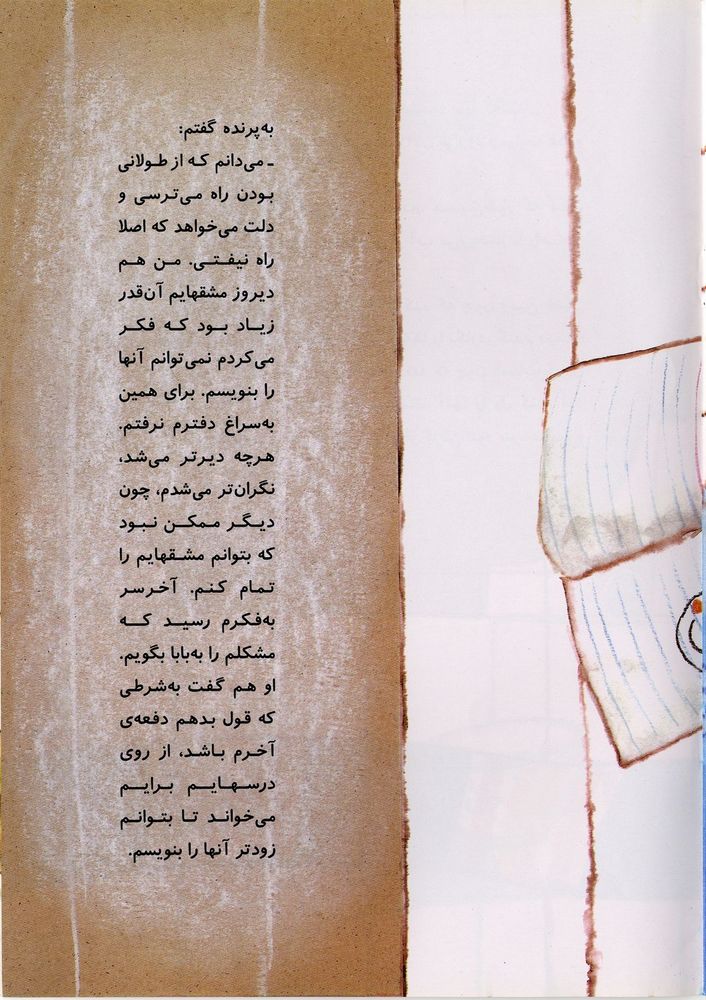 به‌پرنده گفتم:
ـ می‌دانم که از طولانی
بودن راه می‌ترسی و
دلت می‌خواهد که اصلا
راه نیفتی. من هم
دیروز مشقهایم آن‌قدر
زیاد بود که فکر
می‌کردم نمی‌توانم آنها
را بنویسم. برای همین
به‌سراغ دفترم نرفتم.
هرچه دیرتر می‌شد،
نگران‌تر می‌شدم، چون
دیگر ممکن نبود
که بتوانم مشقهایم را
تمام کنم. آخرسر
به‌فکرم رسید که
مشکلم را به‌بابا بگویم.
او هم گفت به‌شرطی
که قول بدهم دفعه‌ی
آخرم باشد، از روی
درسهایم برایم
می‌خواند تا بتوانم
زودتر آنها را بنویسم.